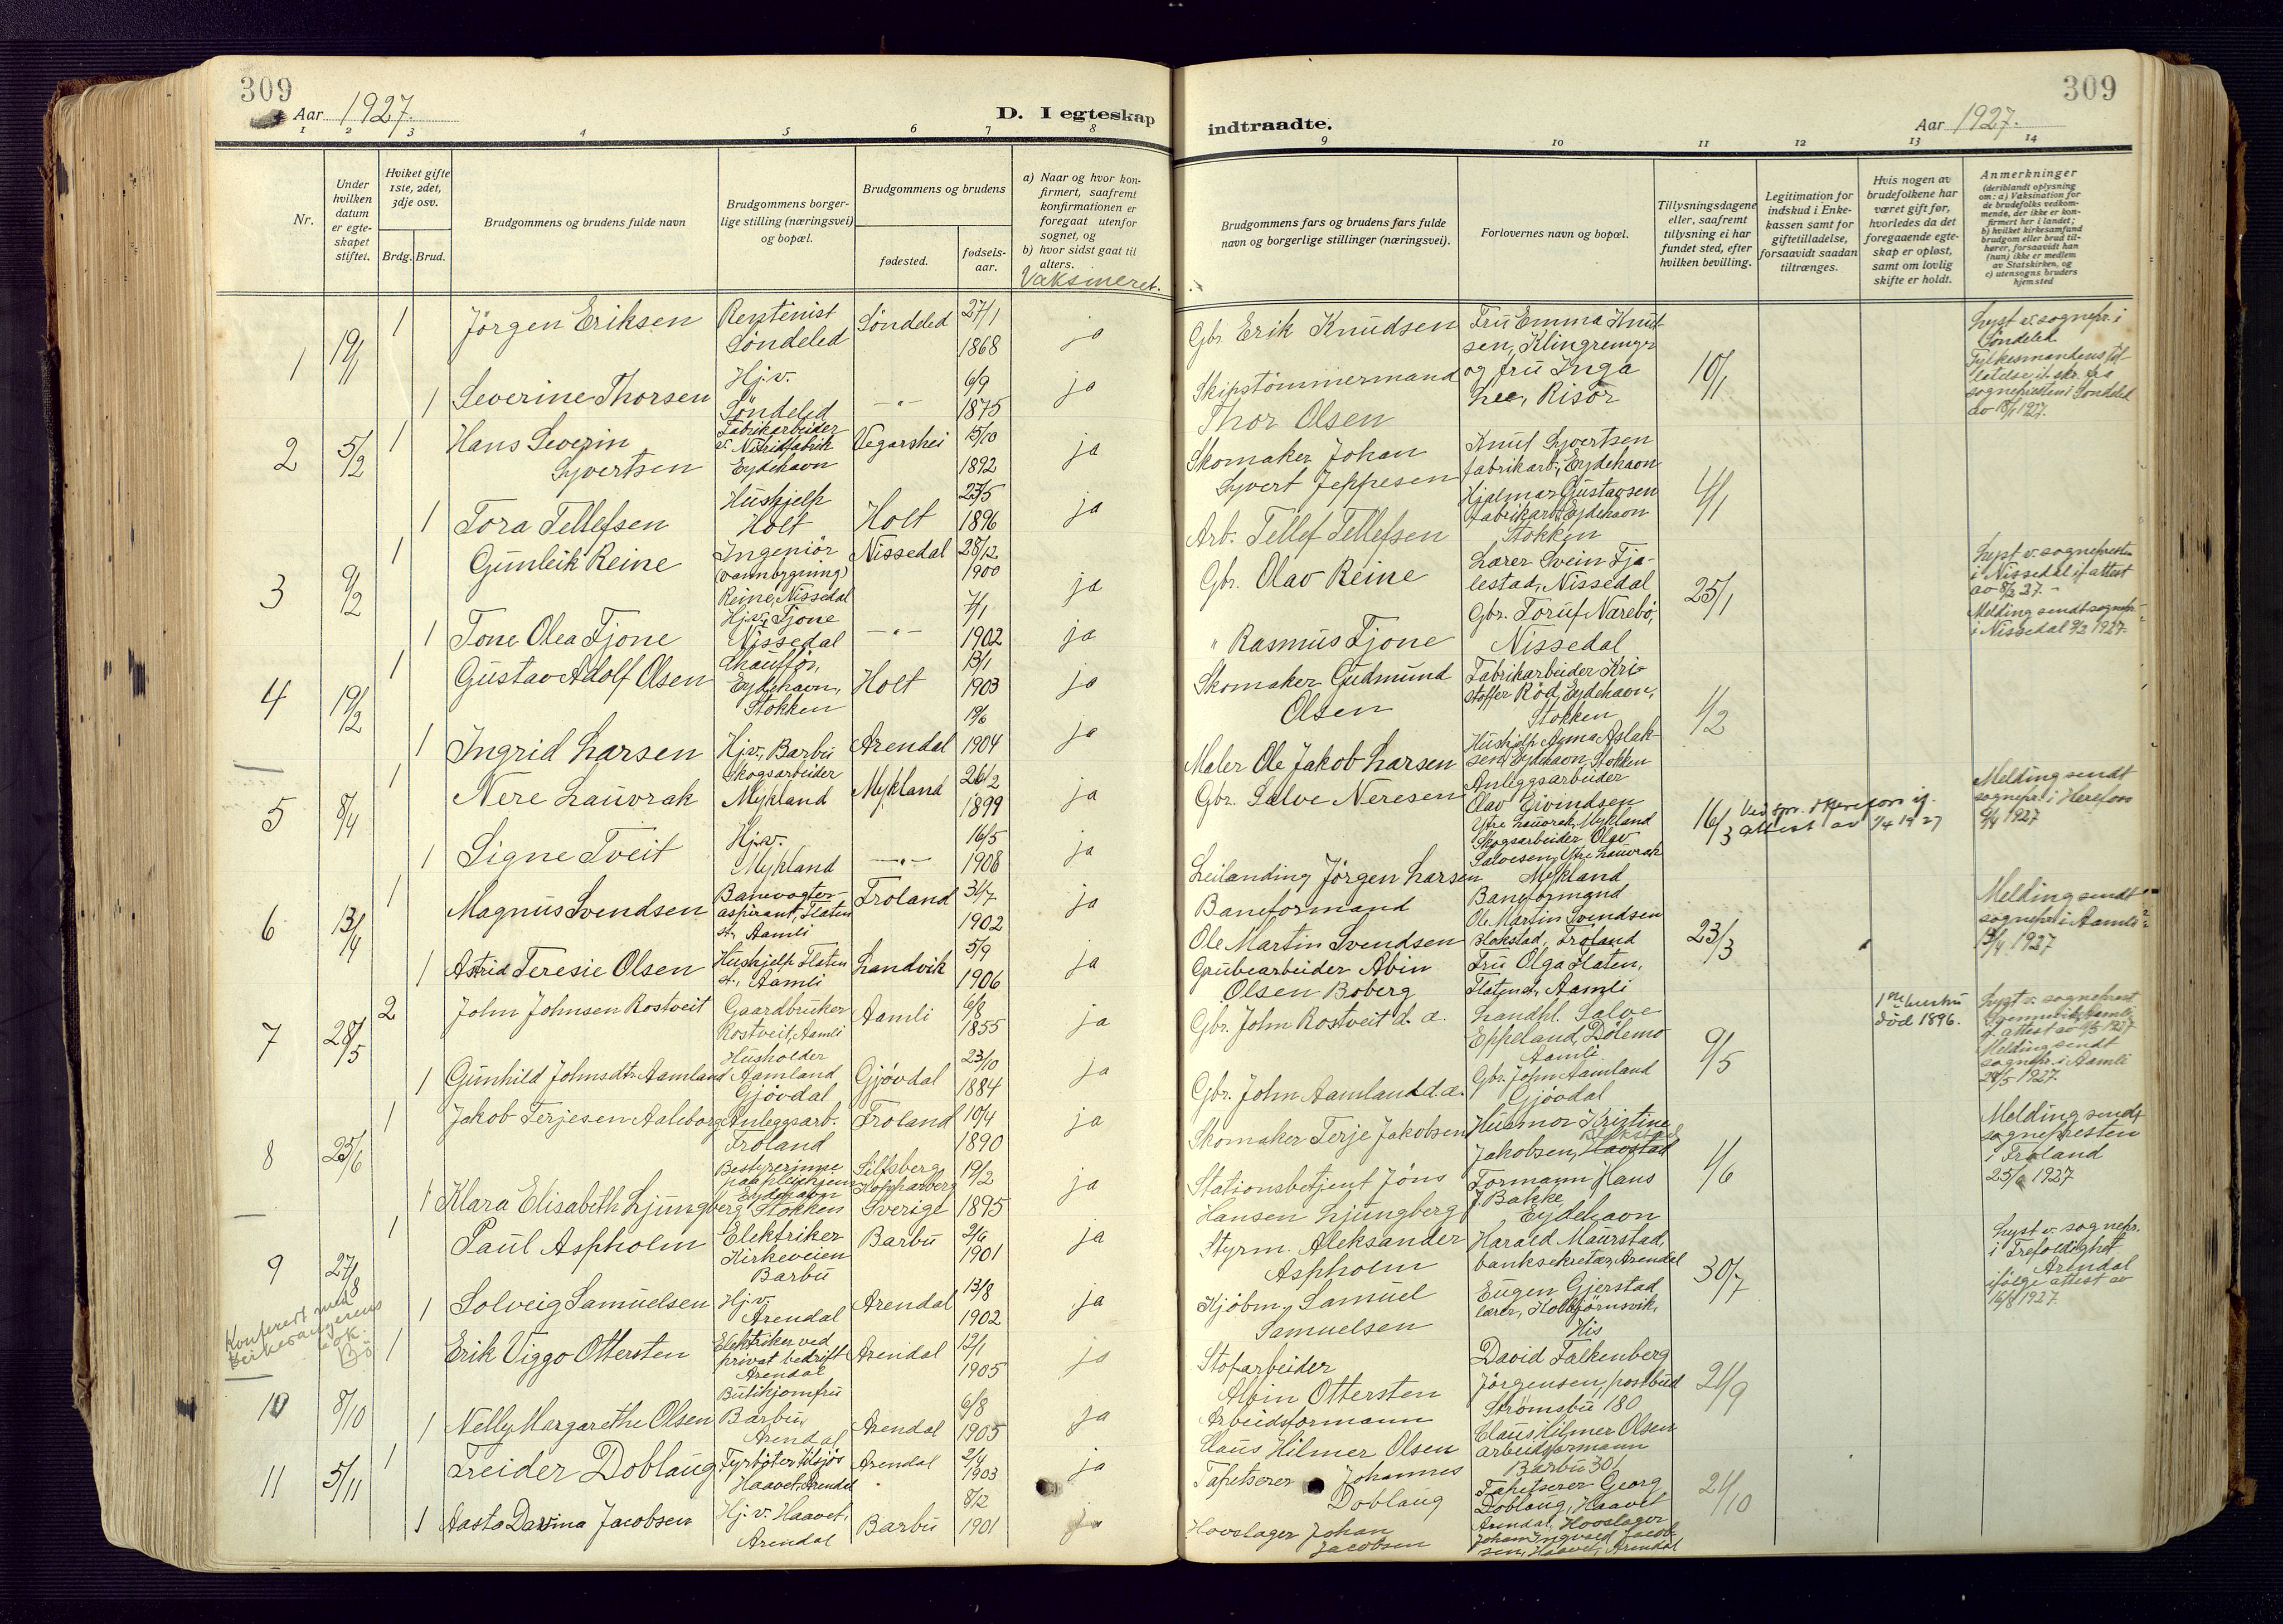 309
Aar 1927.
D. I egteskap
1 2 3 4 5 6 7 8
Nr.
Under hvilken datum er egteskapet stiftet.
Hviket gifte 1ste, 2det, 3dje osv.
Brdg. Brud.
Brudgommens og brudens fulde navn
Brudgommens borgerlige stilling (næringsvei) og bopæl.
Brudgommens og brudens
fødested.
fødselsaar.
a) Naar og hvor konfirmert, saafremt konfirmationen er foregaat utenfor sognet, og
b) hvor sidst gaat til alters.
Vaksineret.
1 19/1
1 Jørgen Eriksen Rentenist Søndeled Søndeled 27/1 1868 ja
1 Severine Thorsen Hj.v. Søndeled —"— 6/9 1875 ja
2 5/2
1 Hans Severin Syvertsen Fabrikarbeider v. Nitridfabrik Eydehavn Vegarshei 15/10 1892 ja
1 Tora Tellefsen Hushjelp Holt Holt 27/5 1896 ja
3 9/2
1 Gunleik Reine Ingeniør (vannbygning) Reine, Nissedal Nissedal 28/12 1900 ja
1 Tone Olea Fjone Hj.v. Fjone Nissedal —"— 7/1 1902 ja
4 19/2
1 Gustav Adolf Olsen Chauffør, Eydehavn, Stokken Holt 13/1 1903 ja
1 Ingrid Larsen Hj.v., Barbu Arendal 19/6 1904 ja
5 8/4
1 Nere Lauvrak Skogsarbeider Mykland Mykland 26/2 1899 ja
1 Signe Tveit Hj.v. Mykland —"— 16/5 1908 ja
6 13/4
1 Magnus Svendsen Banevogteraspirant, Flaten st., Aamli Froland 31/7 1902 ja
1 Astrid Teresie Olsen Hushjelp Flaten st., Aamli Landvik 5/9 1906 ja
7 28/5
2 John Johnsen Rostveit Gaardbruker Rostveit, Aamli Aamli 6/8 1855 ja
1 Gunhild Johnsdtr Aamland Husholder Aamland Gjøvdal Gjøvdal 23/10 1884 ja
8 25/6
1 Jakob Terjesen Asleborg Anleggsarb. Froland Froland 10/4 1890 ja
1 Klara Elisabeth Ljungberg Bestyrerinne Eydehavn Stokken Kopparberg Sverige 19/2 1895 ja
9 27/8
1 Paul Aspholm Elektriker Kirkeveien Barbu Barbu 2/6 1901 ja
1 Solveig Samuelsen Hj.v. Arendal Arendal 13/8 1902 ja
Konferert med kirkesangerens bok. Bö
10 8/10
1 Erik Viggo Ottersten Elektriker ved privat bedrift Arendal Arendal 12/1 1905 ja
1 Nelly Margarethe Olsen Butikjomfru Barbu, Arendal Arendal 6/8 1905 ja
11 5/11
1 Freider Doblaug Fyrbøter tilsjøs Haavet, Arendal Arendal 2/4 1903 ja
1 Aasta Davina Jacobsen Hj.v. Haavet, Arendal Barbu 8/2 1901 ja
309
indtraadte.
Aar 1927.
9 10 11 12 13 14
Brudgommens fars og brudens fars fulde navn og borgerlige stillinger (næringsvei).
Forlovernes navn og bopæl.
Tillysningsdagene eller, saafremt tillysning ei har fundet sted, efter hvilken bevilling.
Legitimation for indskud i Enkekassen samt for giftetilladelse, forsaavidt saadan tiltrænges.
Hvis nogen av brudefolkene har været gift før, hvorledes da det foregaaende egteskap er opløst, samt om lovlig skifte er holdt.
Anmerkninger (deriblandt oplysning om: a) Vaksination for de brudefolks vedkommende, der ikke er konfirmert her i landet; b) hvilket kirkesamfund brudgom eller brud tilhører, forsaavidt han (hun) ikke er medlem av Statskirken, og c) utensogns bruders hjemsted
Gbr. Erik Knudsen
Skipstømmermand Thor Olsen
Fru Emma Knudsen, Klingremyr og fru Inga Lee, Risør
10/1
Lyst v. sognepr. i Søndeled. Fylkesmandens tillatelse if. skr. fra sognepresten i Søndeled av 18/1 1927.
Skomaker Johan Syvert Jeppesen
Arb. Tellef Tellefsen
Knut Syvertsen fabrikarb., Eydehavn
Hjalmar Gustavsen fabrikarb. Eydehavn Stokken
4/1
Gbr. Olav Reine
" Rasmus Fjone
Lærer Svein Fjalestad, Nissedal
Gbr. Toruf Nærebø, Nissedal
25/1
Lyst v. sognepresten i Nissedal if. attest av 8/2 27. -
Melding sendt sognepr. i Nissedal 9/2 1927.
Skomaker Gudmund Olsen
Maler Ole Jakob Larsen
Fabrikarbeider Kristoffer Rød, Eydehavn, Stokken
Hushjelp Anna Aslaksen, Eydehavn, Stokken
1/2
Gbr. Salve Neresen
Leilanding Jörgen Larsen
Anleggsarbeider Olav Eivindsen Ytre Lauvrak, Mykland
Skogsarbeider Olav Salvesen, Ytre Lauvrak Mykland
16/3
Ved spr. i Herefoss if. attest av 1/4 1927
Melding sendt sognepr. i Herefoss 9/4 1927
Baneformand Ole Martin Svendsen
Grubearbeider Abin Olsen Boberg
Baneformand Ole Martin Svendsen Blakstad, Froland
Fru Olga Flaten, Flaten st., Aamli
23/3
Melding sendt sognepr. i Aamli 13/4 1927
Gbr. John Rostveit d. æ.
Gbr. John Aamland d. æ.
Landhl. Salve Eppeland, Dølemo Aamli.
Gbr. John Aamland Gjøvdal
9/5
1ne hustru död 1896.
Lyst v. sogneprest Aamli, if. attest av 1927
Melding sendt sognepr. i Aamli 28/5 1927.
Skomaker Terje Jakobsen
Stationsbetjent Jöns Hansen Ljungberg
Husmor Kristine Jakobsen, Blakstad
Formann Hans J. Bakke Eydehavn
1/6
Melding sendt sognepresten i Froland 25/6 1927
Styrm. Aleksander Aspholm
Kjøbm. Samuel Samuelsen
Harald Maurstad, banksekretær, Arendal
Eugen Gjerstad lærer, Kolbjörnsvik, His
30/7
Lyst v. sognepr. i Trefoldighet Arendal ifølge attest av 16/8 1927.
Stofarbeider Albin Ottersten
Arbeidsformann Claus Hilmer Olsen
David Falkenberg Jörgensen, postbud Strømsbu 180
Claus Hilmer Olsen arbeidsformann Barbu 301
21/9
Tapetserer Johannes Doblaug
Hovslager Johan Jacobsen
Tapetserer Georg Doblaug, Haavet Arendal, Hovslager Johan Ingvald Jacobsen, Haavet, Arendal
24/10